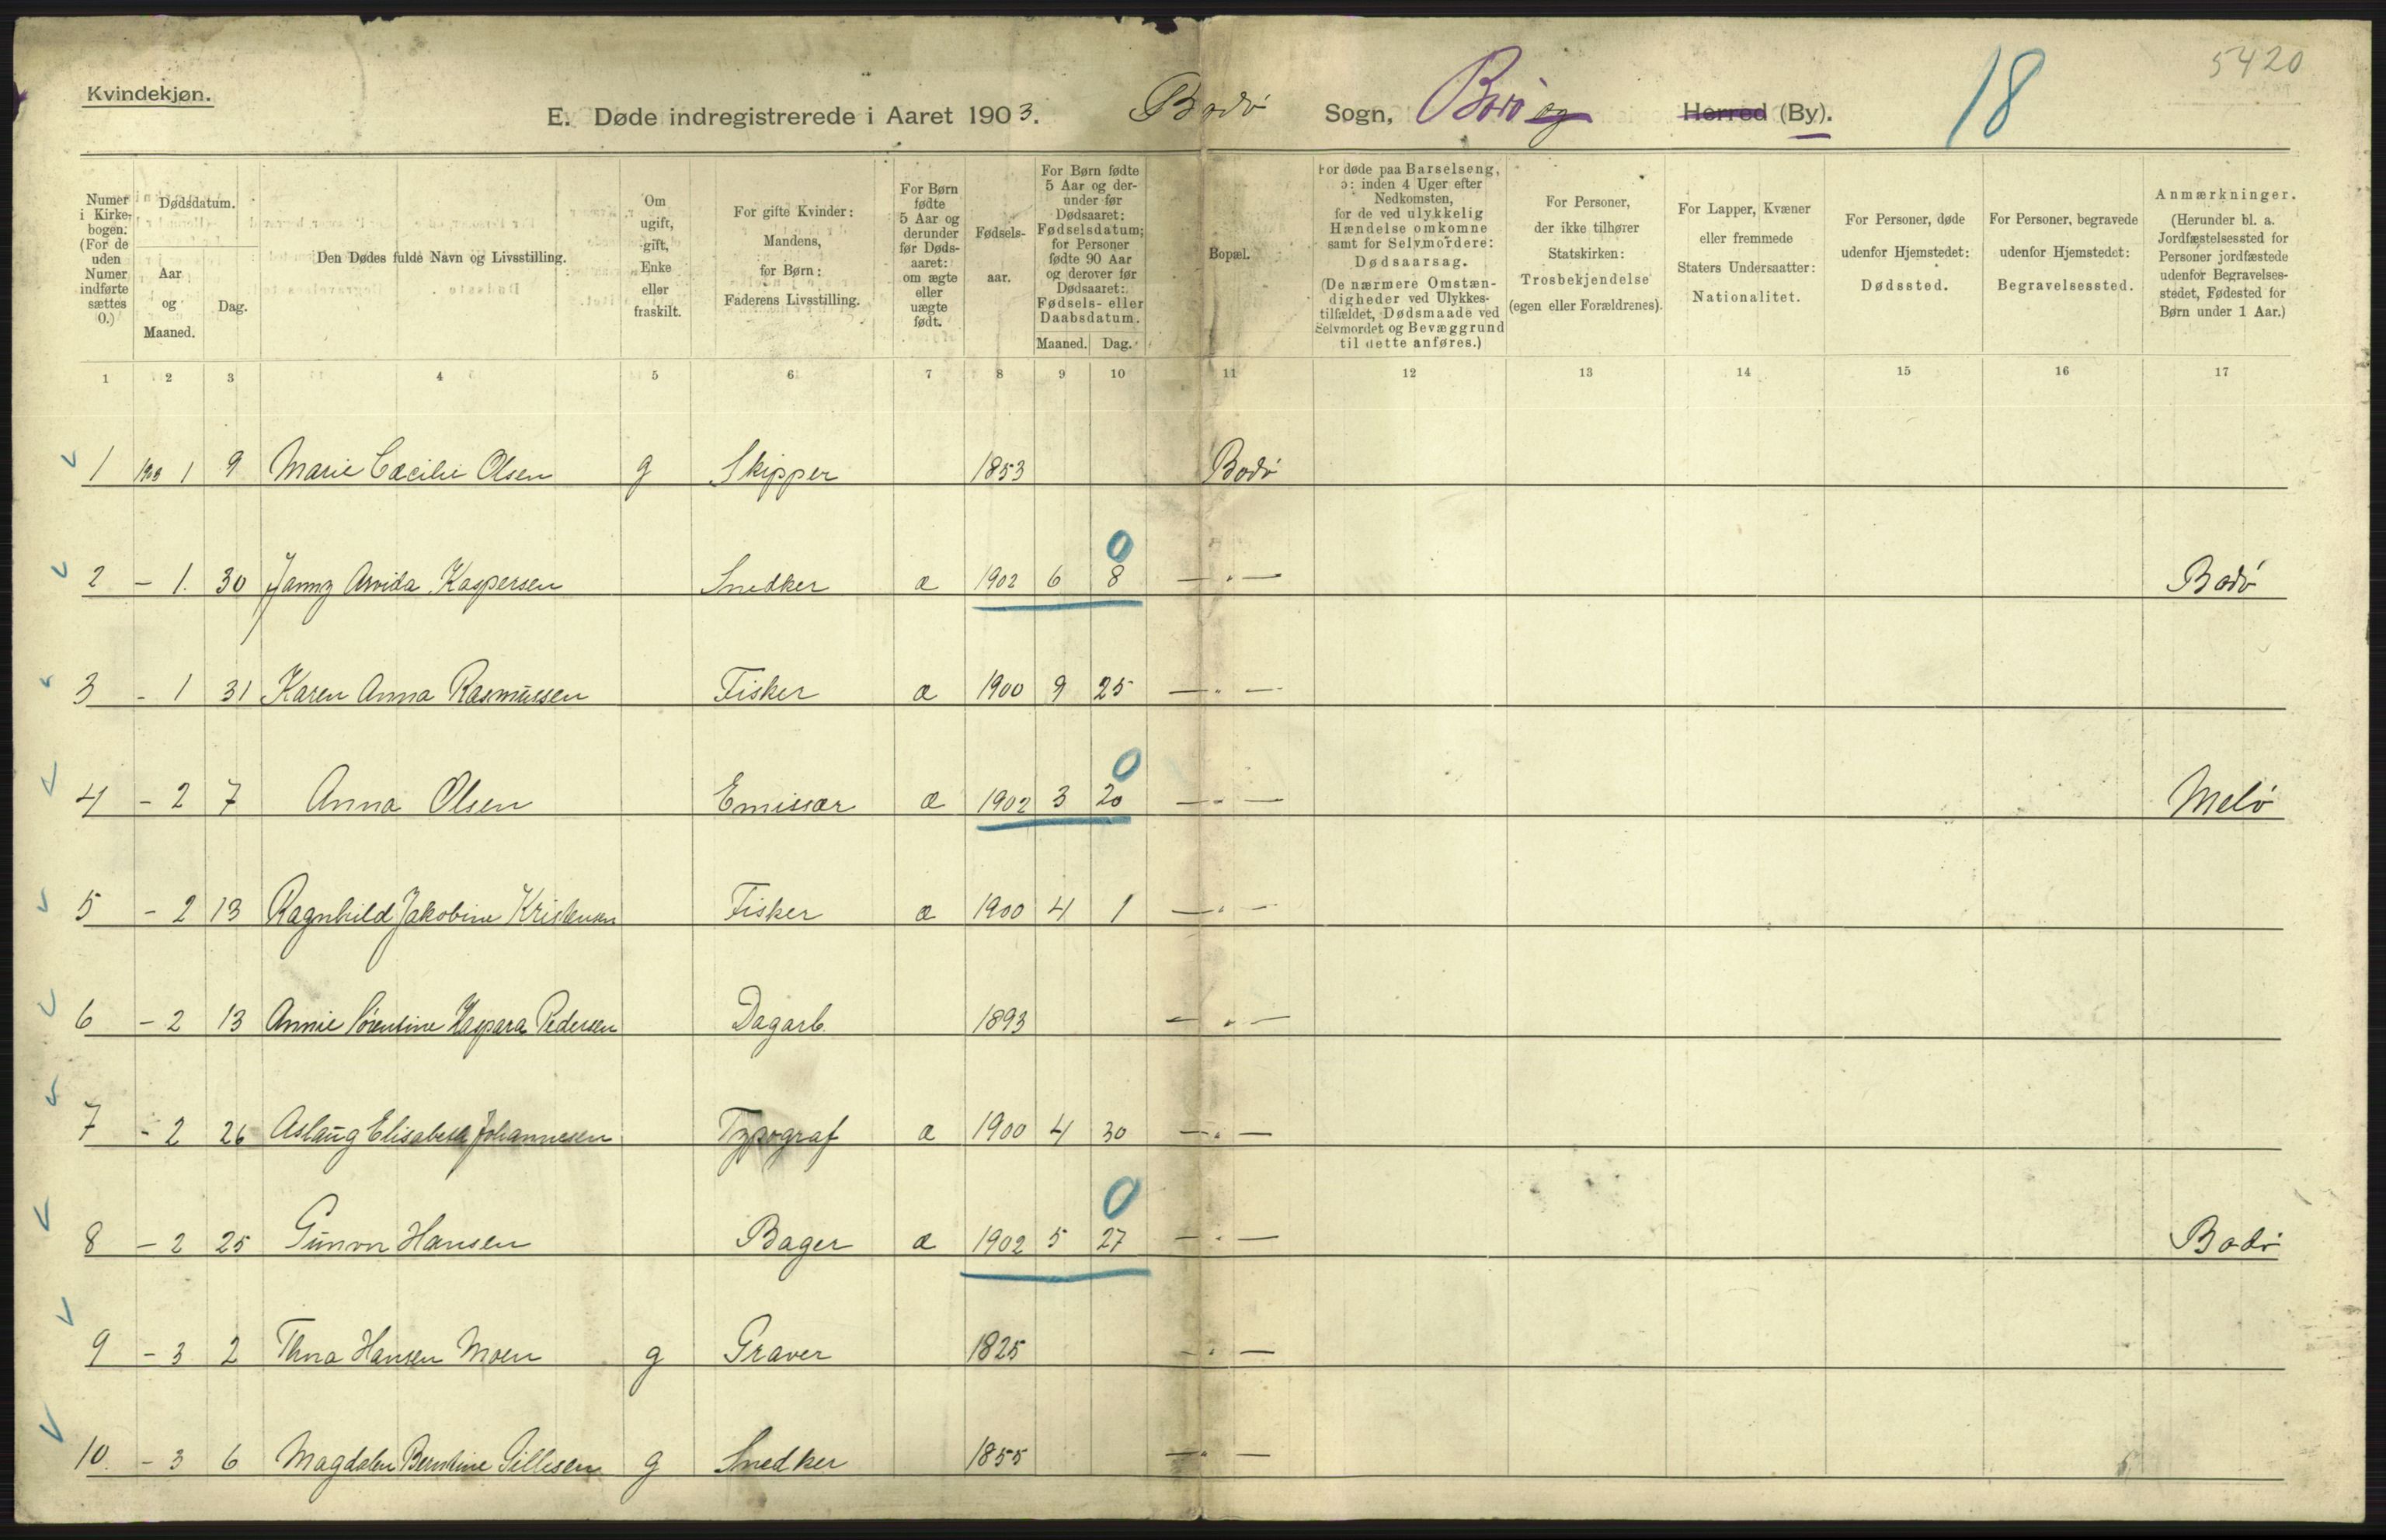 5420
Kvindekjøn.
E. Døde indregistrerede i Aaret 1903. Bodø Sogn, Bodø og Herred (By). 18
Numer i Kirkebogen: (For de uden Numer indførte sættes 0.)
Dødsdatum.
Aar og Maaned.
Dag.
Den Dødes fulde Navn og Livsstilling.
Om ugift, gift, Enke eller fraskilt.
For gifte Kvinder: Mandens, for Børn: Faderens Livsstilling.
For Børn fødte 5 Aar og derunder før Dødsaaret: om ægte eller uægte født.
Fødselsaar.
For Børn fødte 5 Aar og derunder før Dødsaaret: Fødselsdatum; for Personer fødte 90 Aar og derover før Dødsaaret: Fødsels- eller Daabsdatum.
Maaned. Dag.
Bopæl.
For døde paa Barselseng, ɔ: inden 4 Uger efter Nedkomsten, for de ved ulykkelig Hændelse omkomne samt for Selvmordere: Dødsaarsag.
(De nærmere Omstændigheder ved Ulykkestilfældet, Dødsmaade ved Selvmordet og Bevæggrund til dette anføres.)
For Personer, der ikke tilhører Statskirken: Trosbekjendelse (egen eller Forældrenes).
For Lapper, Kvæner eller fremmede Staters Undersaatter: Nationalitet.
For Personer, døde udenfor Hjemstedet: Dødssted.
For Personer, begravede udenfor Hjemstedet: Begravelsessted.
Anmærkninger. (Herunder bl. a. Jordfæstelsessted for Personer jordfæstede udenfor Begravelsesstedet, Fødested for Børn under 1 Aar.)
1 2 3 4 5 6 7 8 9 10 11 12 13 14 15 16 17
1 1903 1 9 Marie Cæcilie Olsen g Skipper 1853 Bodø
0
2 - 1. 30 Janny Arvida Kaspersen Snedker æ 1902 6 8 — " — Bodø
3 - 1 31 Karen Anna Rasmussen Fisker æ 1900 9 25 — " —
0
4 - 2 7 Anna Olsen Emissær æ 1902 3 20 — " — Melø
5 - 2 13 Ragnhild Jakobine Kristensen Fisker æ 1900 4 1 — " —
6 - 2 13 Annie Sörentine Kaspara Pedersen Dagarb. 1893 — " —
7 - 2 26 Aslaug Elisabeth Johannesen Typograf æ 1900 4 30 — " —
0
8 - 2 25 Gunvor Hansen Bager æ 1902 5 27 — " — Bodø
9 - 3 2 Hansen Moen g Graver 1825 — " —
10. - 3 6 Magdalene Berntine Gillesen g Snedker 1855 — " —